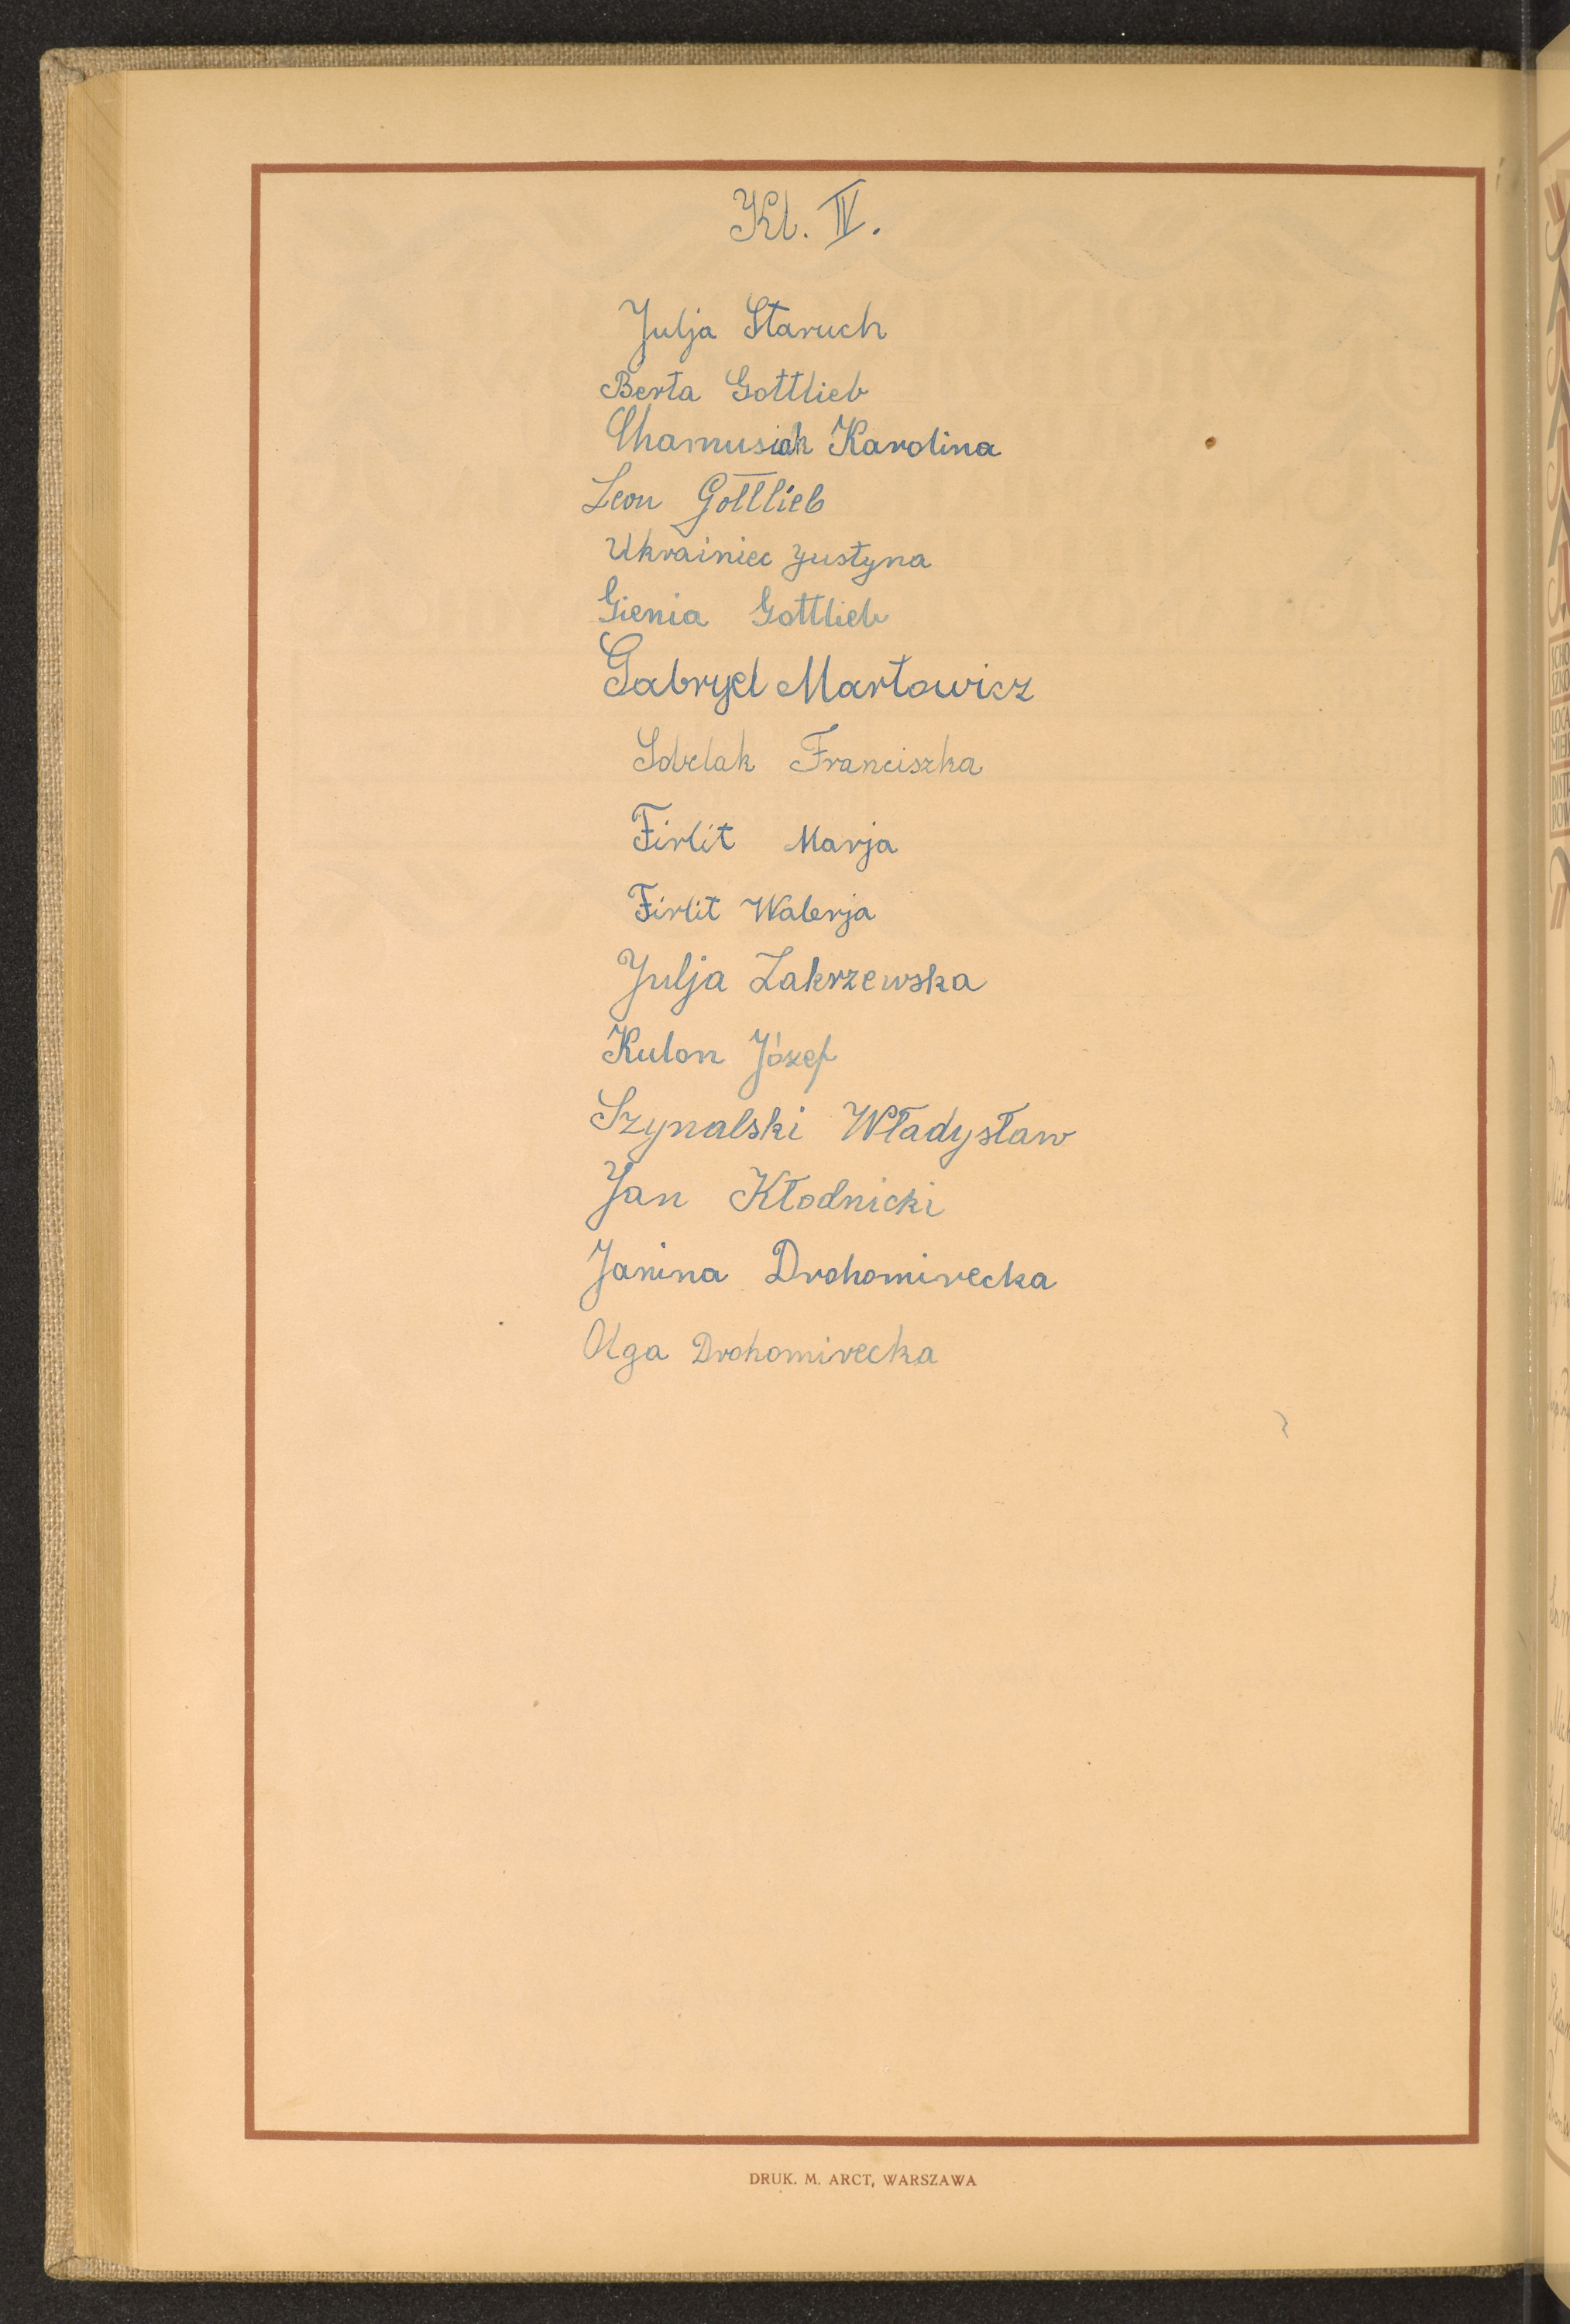 Kl. IV.
Julja Staruch
Berta Gottlieb
Chamusiak Karolina
Leon Gottlieb
Ukrainiec Justyna
Gienia Gottlieb
Gabryel Martowicz
Sobelak Franciszka
Firlit Marja
Firlit Walerja
Julja Zakrzewska
Kulon Józef
Szynalski Władysław
Jan Kłodnicki
Janina Drohomirecka
Olga Drohomirecka
DRUK. M. ARCT, WARSZAWA